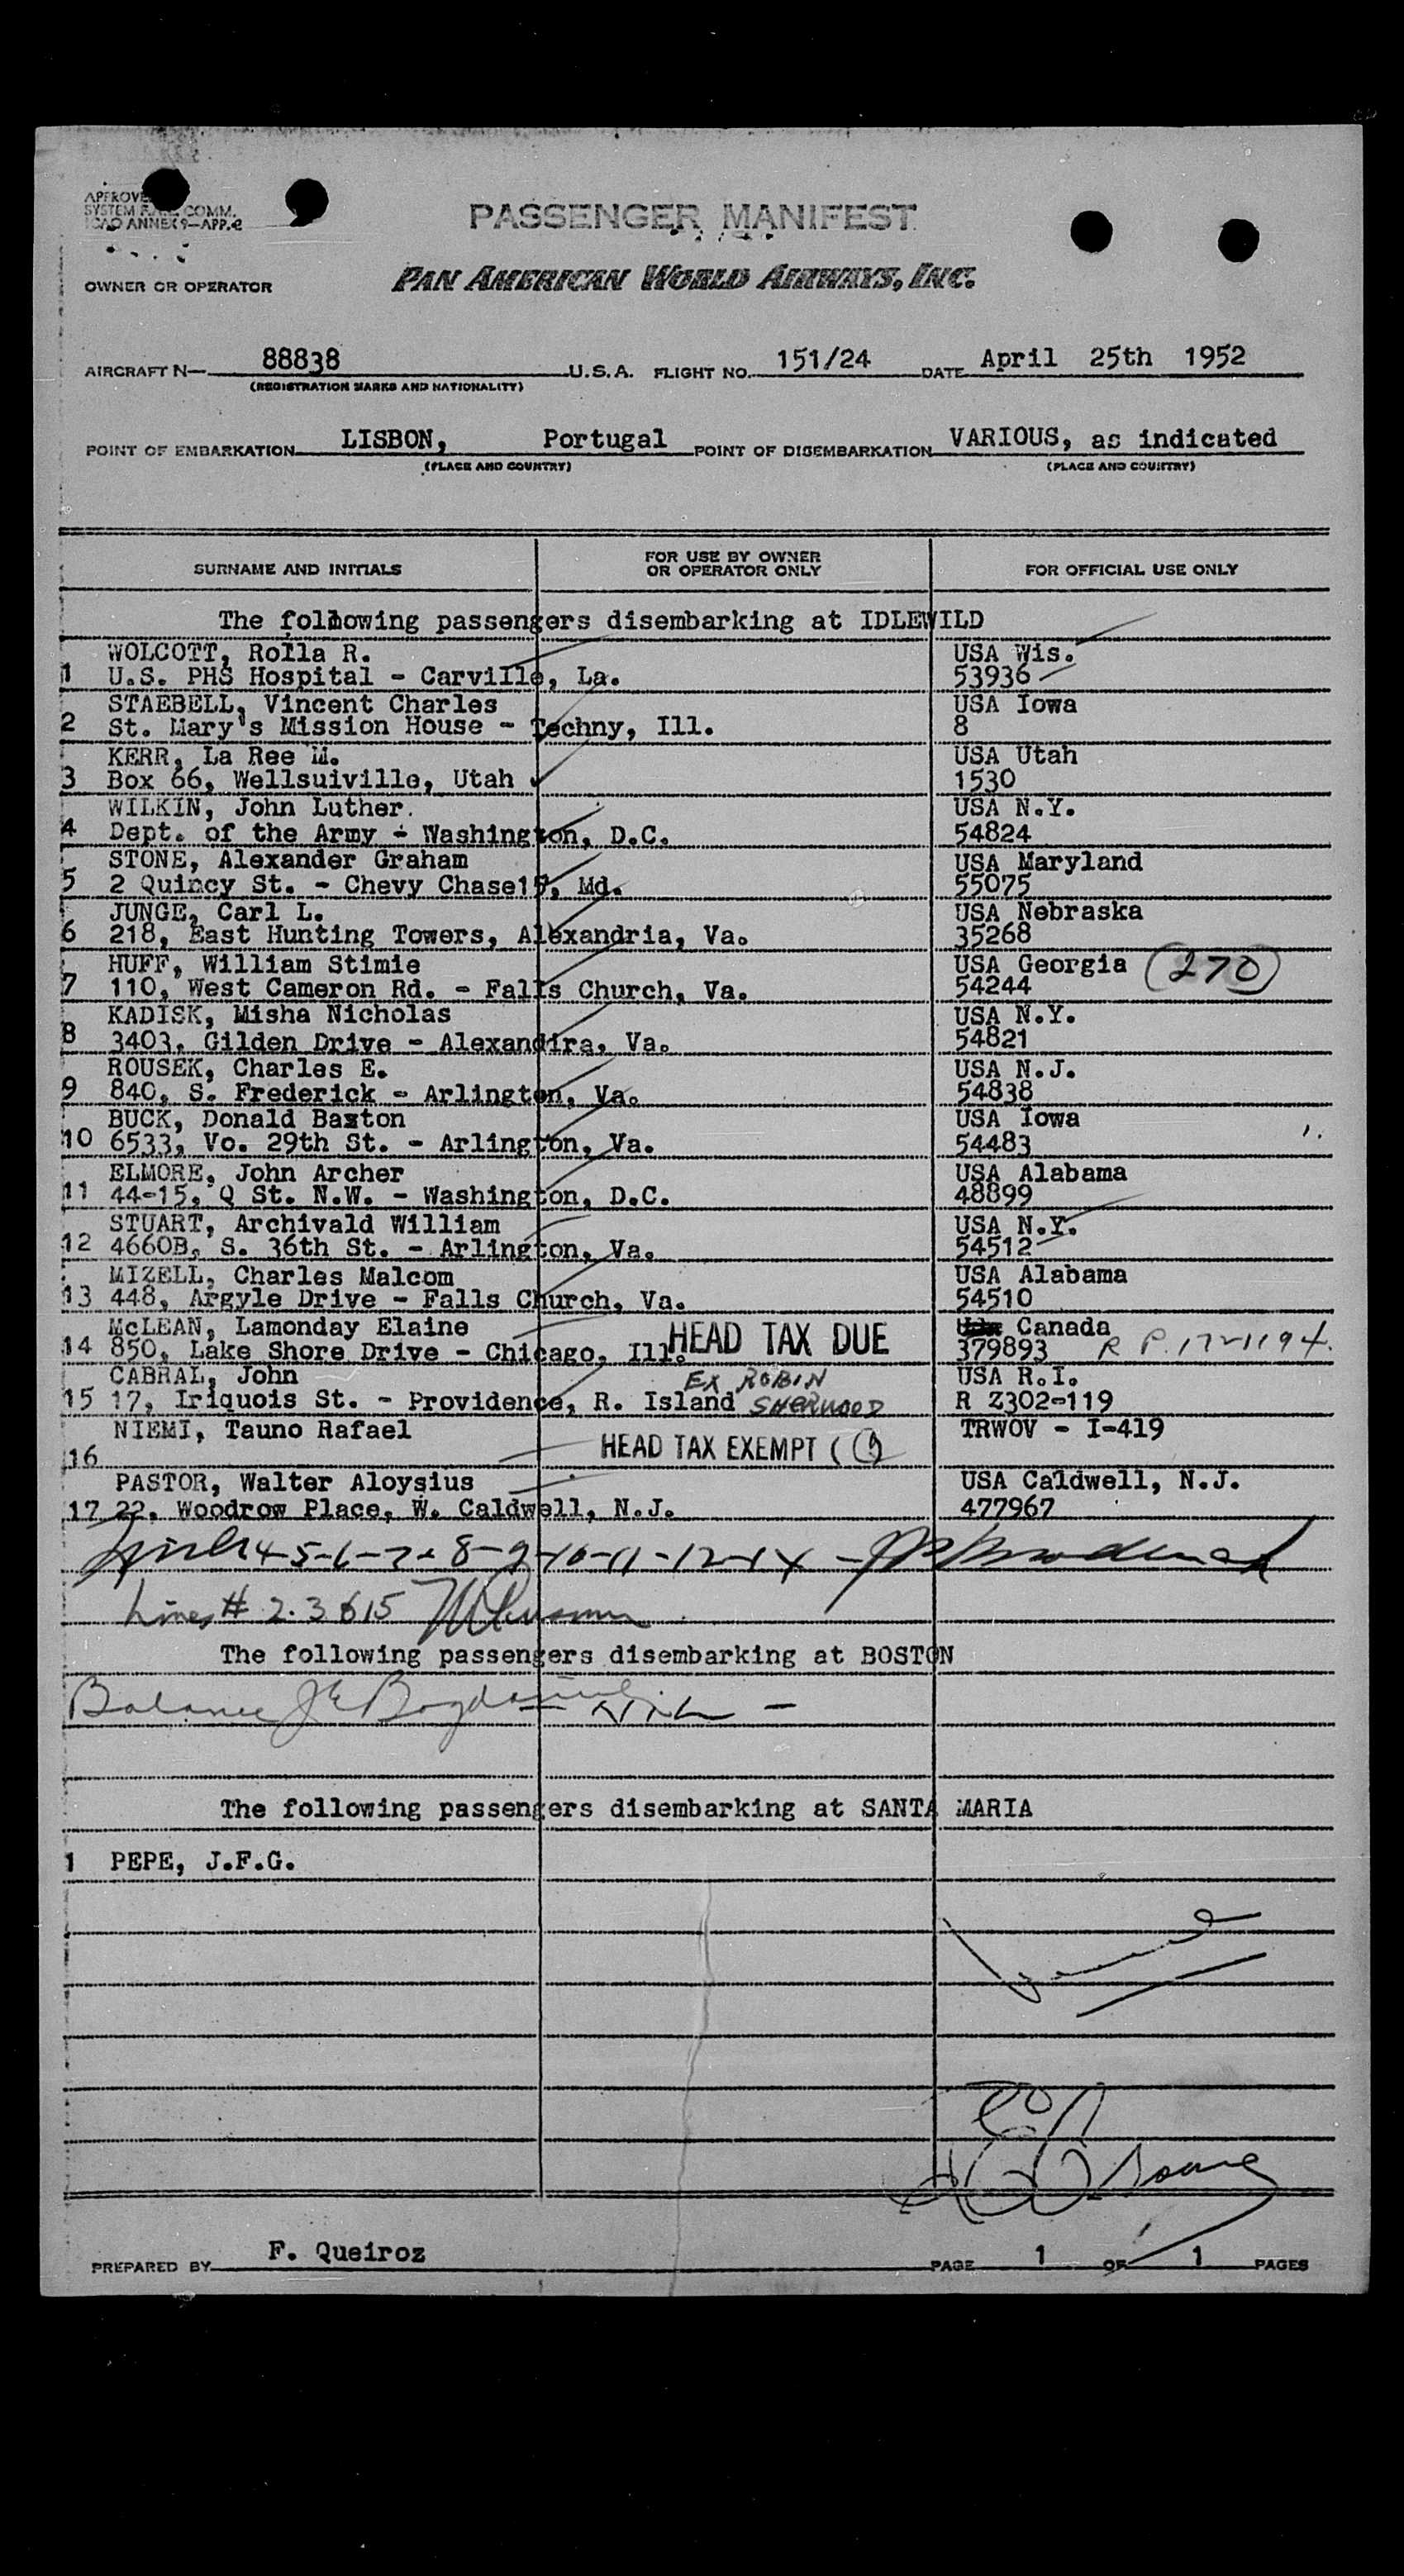 PASSENGER MANIFEST
SYSTEM COMM.
ICAO ANNEX 9-APP.
OWNER OR OPERATOR PAN AMERICAN WORLD AIRWAYS, INC.
AIRCRAFT N- 88838 U.S.A. FLIGHT NO. 151/24 DATE April 25th 1952
(REGISTRATION MARKS AND NATIONALITY)
POINT OF EMBARKATION LISBON, Portugal POINT OF DISEMBARKATION VARIOUS, as indicated
(PLACE AND COUNTRY) (PLACE AND COUNTRY)
SURNAME AND INITIALS FOR USE BY OWNER OR OPERATOR ONLY FOR OFFICIAL USE ONLY
The following passengers disembarking at IDLEWILD
WOLCOTT, Rolla R. USA Wis.
1 U.S. PHS Hospital - Carville, La. 53936
STAEBELL, Vincent Charles USA Iowa
2 St. Mary's Mission House - Techny, Ill. 8
KERR, La Ree M. USA Utah
3 Box 66, Wellsuiville, Utah 1530
WILKIN, John Luther. USA N.Y.
4 Dept. of the Army - Washington, D.C. 54824
STONE, Alexander Graham USA Maryland
5 2 Quincy St. - Chevy Chase15, Md. 55075
JUNGE, Carl L. USA Nebraska
6 218, East Hunting Towers, Alexandria, Va. 35268
HUFF, William Stimie USA Georgia (270)
7 110, West Cameron Rd. - Falls Church, Va. 54244
KADISK, Misha Nicholas USA N.Y.
8 3403, Gilden Drive - Alexandira, Va. 54821
ROUSEK, Charles E. USA N.J.
9 840, S. Frederick - Arlington, Va. 54838
BUCK, Donald Baxton USA Iowa
10 6533, Vo. 29th St. - Arlington, Va. 54483
ELMORE, John Archer USA Alabama
11 44-15, Q St. N.W. - Washington, D.C. 48899
STUART, Archivald William USA N.Y.
12 4660B, S. 36th St. - Arlington, Va. 54512
MIZELL, Charles Malcom USA Alabama
13 448, Argyle Drive - Falls Church, Va. 54510
McLEAN, Lamonday Elaine HEAD TAX DUE Canada
14 850, Lake Shore Drive - Chicago, Ill. 379893 R P.172-1194
CABRAL, John EX ROBIN USA R.I.
15 17, Iriquois St. - Providence, R. Island SHERWOOD R Z302-119
NIEMI, Tauno Rafael TRWOV - I-419
16 HEAD TAX EXEMPT (
PASTOR, Walter Aloysius USA Caldwell, N.J.
17 22, Woodrow Place, W. Caldwell, N.J. 477967
4-5-6-7-8-9-10-11-12-14
Lines # 2.3 &15
The following passengers disembarking at BOSTON
Balance
The following passengers disembarking at SANTA MARIA
1 PEPE, J.F.G.
PREPARED BY F. Queiroz PAGE 1 OF 1 PAGES